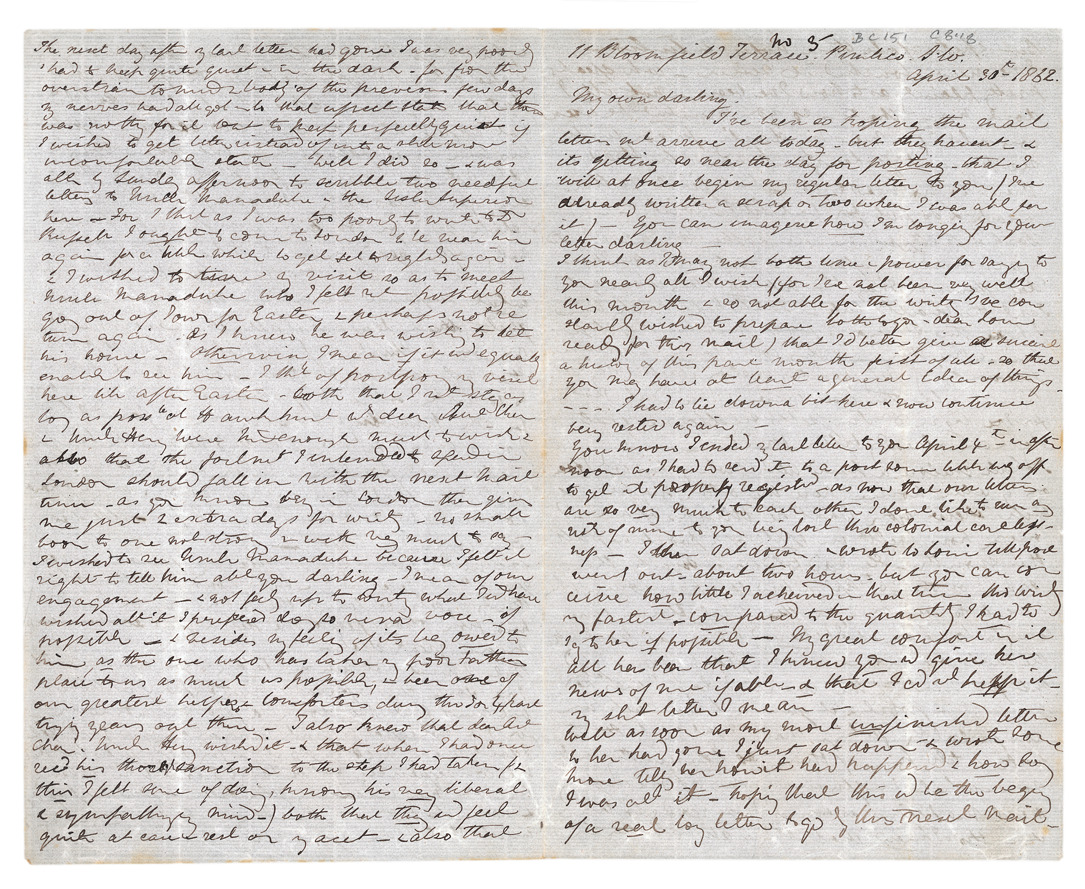 no 5 BC151 C8118
11 Bloomfield Terrace. Pimlico. S.W.
April 30th 1862.
My own darling.
I've been so hoping the mail
letters wd arrive all today - but they havent - &
its getting so near the day for posting - that I
will at once begin my regular letter to you (I've
already written a scrap or two when I was able for
it) - You can imagine how I'm longing for your
letter darling -
I think as I may not both time & power for saying to
you nearly all I wish (for I've not been very well
this month & so not able for the writg I've con
stantly wished to prepare both to you & dear Louie
ready for this mail) that I'd better give
a history of this past month first of all - so that
you may have at least a general idea of things -
- - - . I had to lie down a bit here & now continue
being rested again -
You know I ended my last letter to you April 4th in after
noon as I had to send it to a post some little way off
to get it properly registd - as now that our letters
are so very much to each other I dont like to run any
risk of mine to you being lost thro colonial careless-
ness - I then sat down & wrote to Louie till post
went out - about two hours - but you can con
ceive how little I achieved in that time tho writg
my fastest - compared to the quantity I had to
say to her if possible - My great comfort in it
all has been that I knew you wd give her
news of me if able - & that I cd not help it -
my short letter I mean -
Well as soon as my most unfinished letter
to her had gone I just sat down & wrote some
more tellg her how it had happened & how sorry
I was abt it - hoping that this wd be the beging
of a real long letter to go by this next Mail -
The next day after my last letter had gone I was very poorly
& had to keep quite quiet & in the dark - for from the
overstrain to mind & body of the previous few days
my nerves had all got - to that upset state that there
was nothg for it but to keep perfectly quiet if
I wished to get better instead of into a still more
uncomfortable state - Well I did so - & was
able by Sunday afternoon to scribble two needful
letters to Uncle Marmaduke & the Sister Superior
here - For I thot as I was too poorly to write to Dr
Russell I ought to come to London & be near him
again for a little while to get set to rights again -
& I wished to time my visit so as to meet
Uncle Marmaduke who I felt wd possibly be
going out of Town for Easter & perhaps not re
turn again as I knew he was wishg to let
his home - Otherwise, I mean if it wd equally
enable to see him - I thot of postponing my visit
here till after Easter - both that I might stay as
long as possble at as dear Aunt Char
& Uncle Henry were kind enough much to wish &
also that the fortnt I intended to spend in
London should fall in with the next Mail
time - as you know being in London thus gives
me just 2 extra days for writg - no small
boon to one not strong & with very much to say -
I wished to see Uncle Marmaduke because I felt it
right to tell him abt you darling - I mean of our
engagement - & not feelg up to writg what I wd have
wished abt it I prepared doing so viva voce - if
possible - & besides my feelg of its being owed to
him as the one who has taken my poor Father's
place to us as much as possible, & been one of
our greatest helpers & comforters during those long & hard
tryg years out there - I also knew that dear Aunt
Char. & Uncle Heny wished it - & that when I had once
recd his thoro sanction to the step I had taken (&
this I felt sure of doing, knowing his very liberal
& sympathizing mind -) both that they wd feel
quite at ease & rest on my acct - & also that